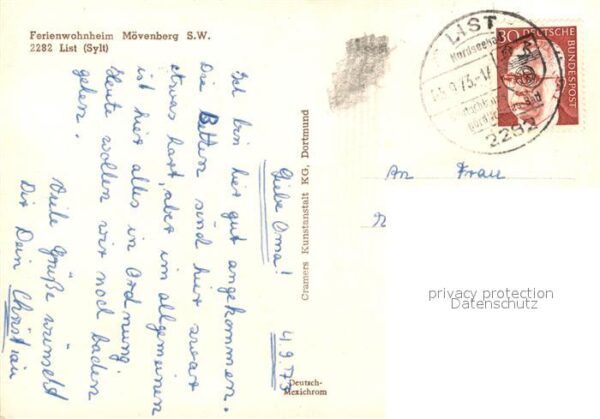 Ferienwohnheim Mövenberg S.W.
2282 List (Sylt)
4.9.73
Liebe Oma!
Ich bin hier gut angekommen.
Die Betten sind hier zwar
etwas hart, aber im allgemeinen
ist hier alles in Ordnung.
Heute wollen wir noch baden
gehen.
Viele Grüße wünscht
Dir Dein Christian
Cramers Kunstanstalt KG, Dortmund
Deutsch-
Mexichrom
LIST
Nordseeba
2282
30
DEUTSCHE
BUNDESPOST
An Frau
privacy protection
Datenschutz